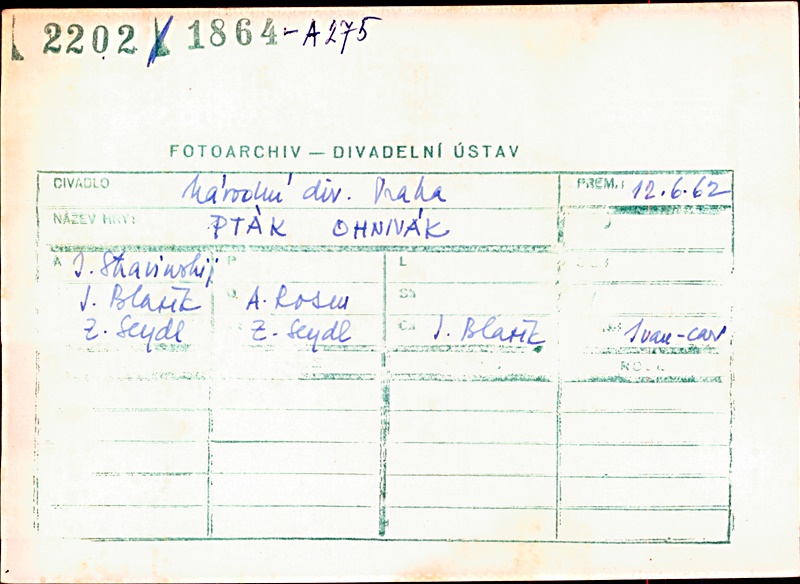 2202/ 1864-A275
FOTOARCHIV — DIVADELNÍ ÚSTAV
DIVADLO Národní div. Praha PREM.: 12.6.62
NÁZEV HRY: PTÁK OHNIVÁK
A I. Stravinskij P L
J. Blažík A. Rosen Sh
Z. Seydl Z. Seydl Ch J. Blažík Ivan-car